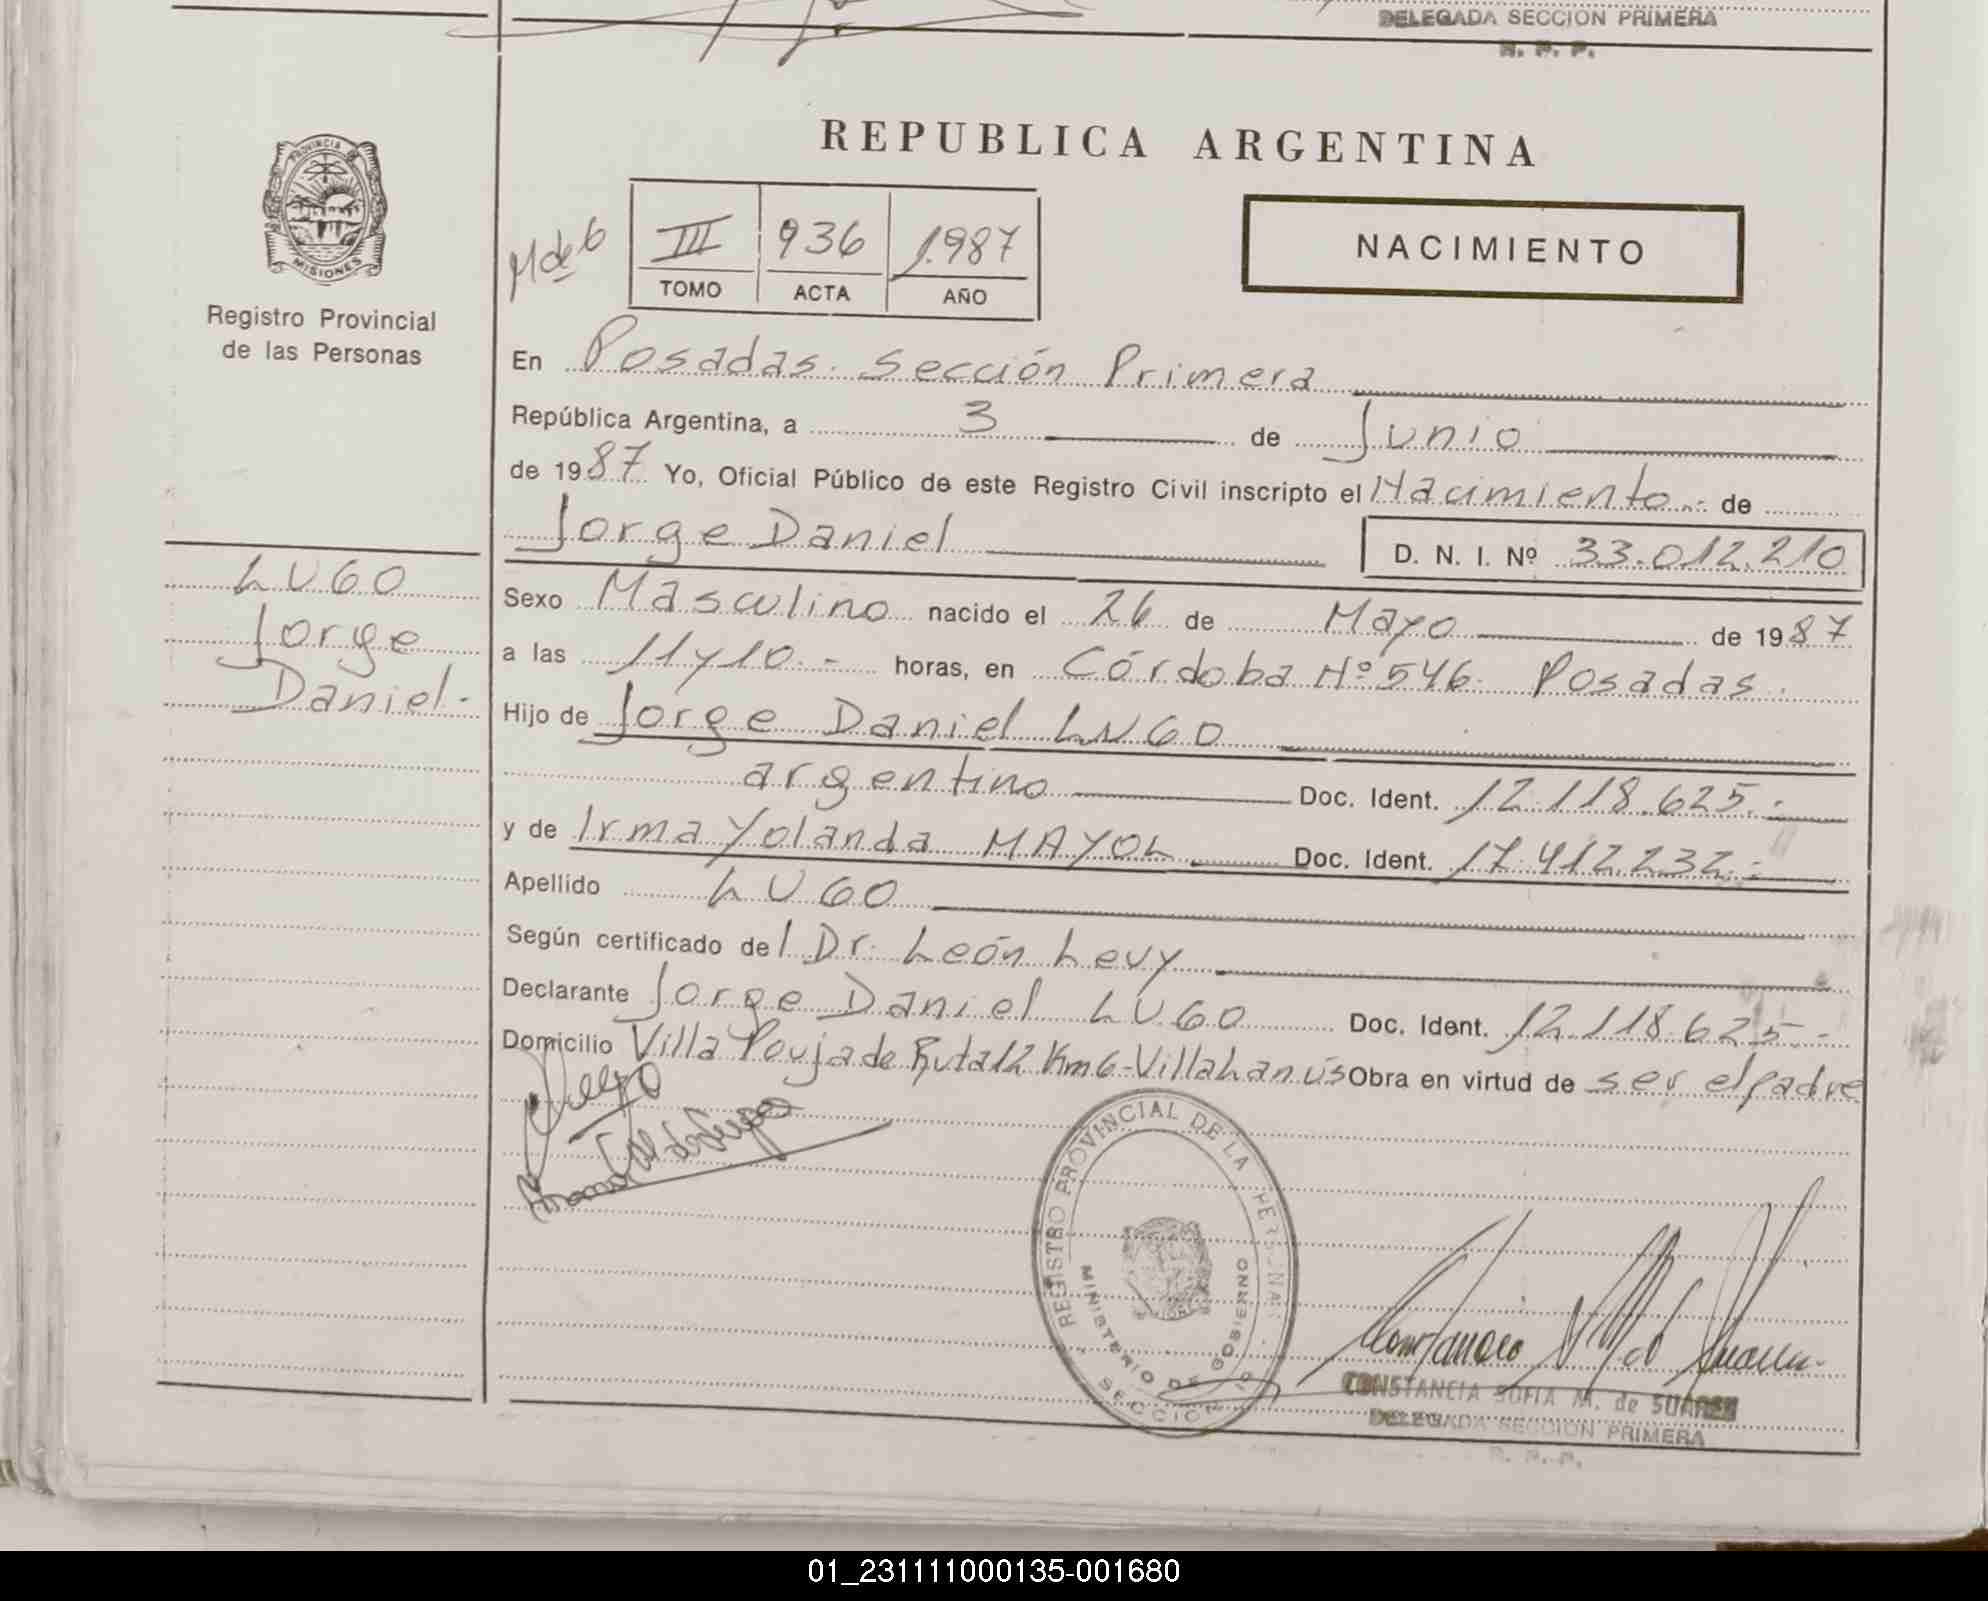 DELEGADA SECCION PRIMERA
R. P. P.
PROVINCIA DE
MISIONES
Registro Provincial
de las Personas
REPUBLICA ARGENTINA
III 936 1.987
TOMO ACTA AÑO
NACIMIENTO
En Posadas. Sección Primera
República Argentina, a 3 de Junio
de 1987 Yo, Oficial Público de este Registro Civil inscripto el Nacimiento.- de
Jorge Daniel D. N. I. Nº 33.012.210
LUGO
Jorge
Daniel.-
Sexo Masculino nacido el 26 de Mayo de 1987
a las 11 y 10.- horas, en Córdoba Nº 546. Posadas.
Hijo de Jorge Daniel LUGO
argentino Doc. Ident. 12.118.625.-
y de Irma Yolanda MAYOL Doc. Ident. 17.412.232.-
Apellido LUGO
Según certificado del Dr. León Levy
Declarante Jorge Daniel LUGO Doc. Ident. 12.118.625.-
Domicilio Villa Poujade Ruta 12 Km 6-Villa Lanús Obra en virtud de ser el padre
REGISTRO PROVINCIAL DE LA PERSONAS
MINISTERIO DE GOBIERNO
SECCION 1º
CONSTANCIA SOFIA M. de SUAREZ
DELEGADA SECCION PRIMERA
R. P. P.
01_231111000135-001680